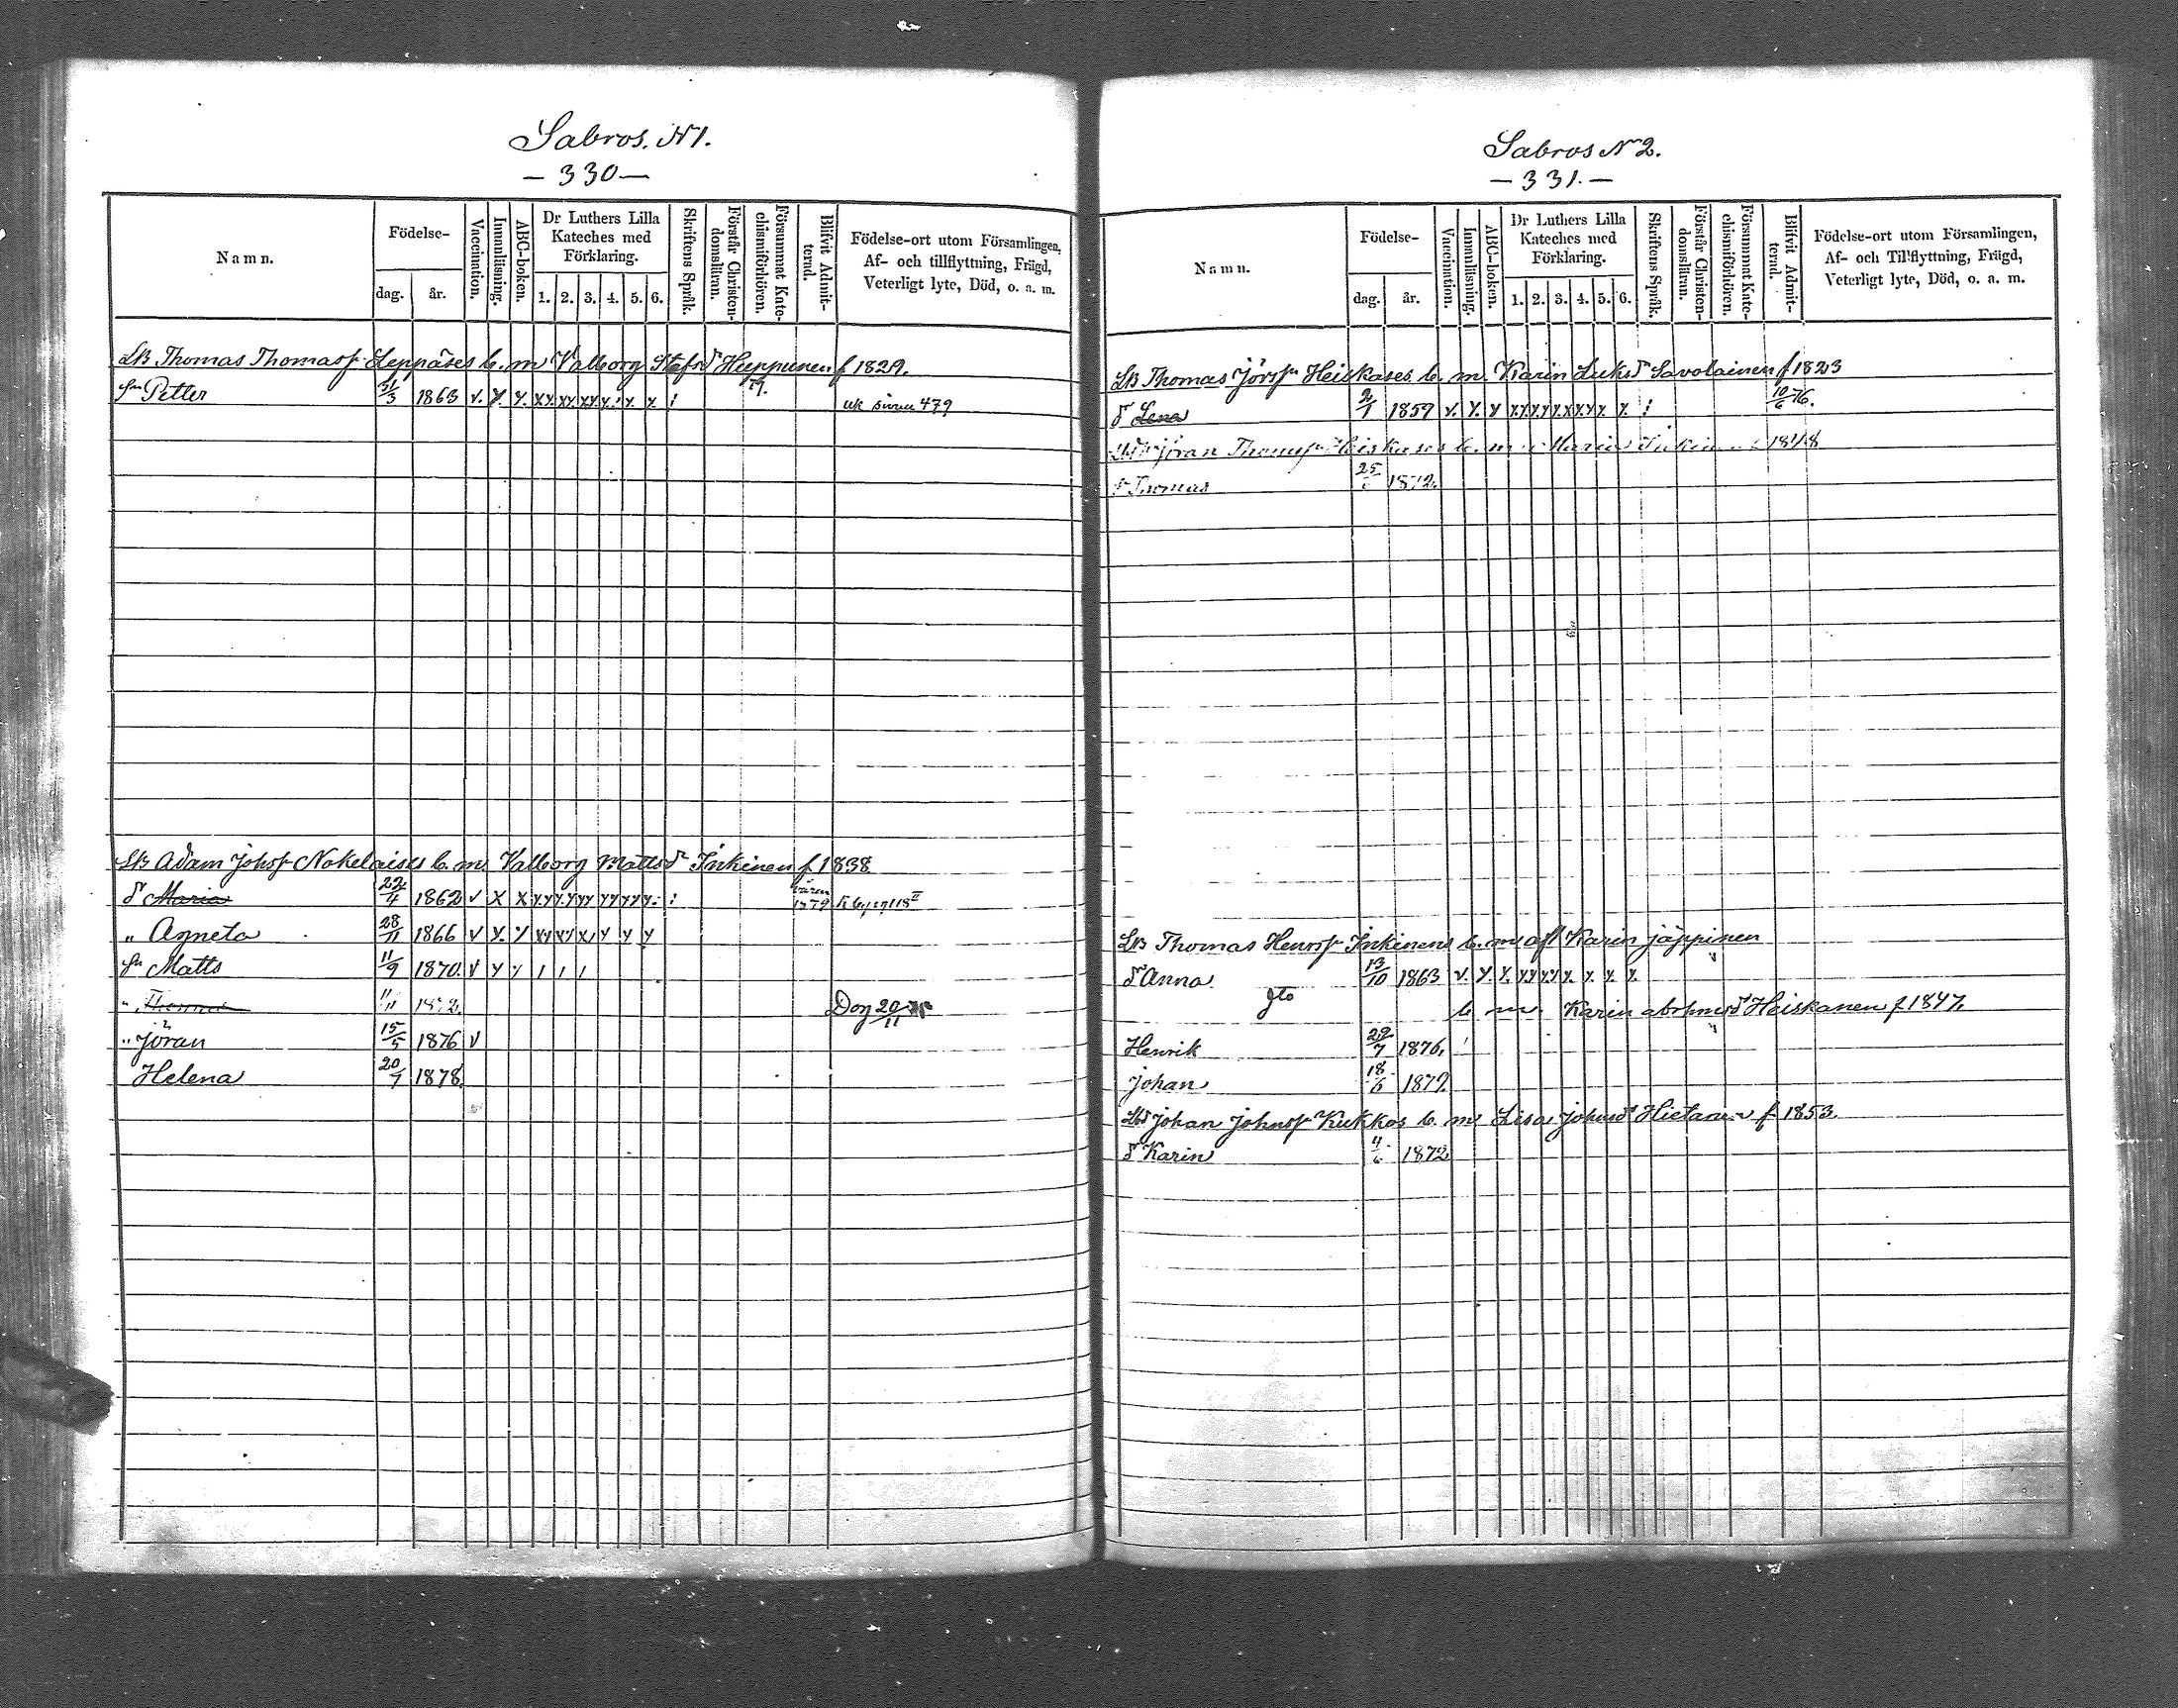 Sabros. N1.
— 330 —
Namn.
Födelse-
dag.
år.
Vaccination.
Innanläsning.
ABC-boken.
Dr Luthers Lilla
Kateches med
Förklaring.
1. 2. 3. 4. 5. 6.
Skriftens Språk.
Förstår Christen-
domsläran.
Försummat Kate-
chismiförhören.
Blifvit Admit-
terad.
Födelse-ort utom Församlingen,
Af- och tillflyttning, Frägd,
Veterligt lyte, Död, o. a. m.
LB Thomas Thomasf. Leppäses b. m Valborg Stafsd Huppunen f 1829.
sn Petter 31/3 1863 v. x. x. xx xx xx x. x. x.
479
LB Adam Johsf Nokelaises b. m. Valborg Mattsd Inkinen f 1838.
d Maria 22/4 1862 v x x xx xx xx xx xx x. 1879
„ Agneta 28/11 1866 v x. x xx xx x. x x x
sn Matts 11/9 1870. v x x / / /
„ Thomas 11/11 1872. Dog 20/11
„ Jöran 15/5 1876 v
Helena 20/7 1878.
Sabros N 2.
— 331. —
Namn.
Födelse-
dag.
år.
Vaccination.
Innanläsning.
ABC-boken.
Dr Luthers Lilla
Kateches med
Förklaring.
1. 2. 3. 4. 5. 6.
Skriftens Språk.
Förstår Christen-
domsläran.
Försummat Kate-
chismiförhören.
Blifvit Admit-
terad.
Födelse-ort utom Församlingen,
Af- och Tillflyttning, Frägd,
Veterligt lyte, Död, o. a. m.
LB Thomas Jörsf Heiskases b. m. Karin Luksd Savolainen f 1823
d Lena 2/1 1859 v. x. x xx xx xx xx x x. 10/6 76.
Jöran Thomsf Heiskases b. m. Maria 1848
s Thomas 25 1872.
LB Thomas Henrsf Inkinens b. m. afl Karin Jäppinen
d Anna 13/10 1863 v. x. x. xx xx x. x. x. x.
dto b. m. Karin Abrhmsd Heiskanen f 1847.
Henrik 29/7 1876.
Johan 18/6 1879.
Johan Johnsf Kukkos b. m. Lisa Johnsd f 1853.
d Karin 4/6 1872